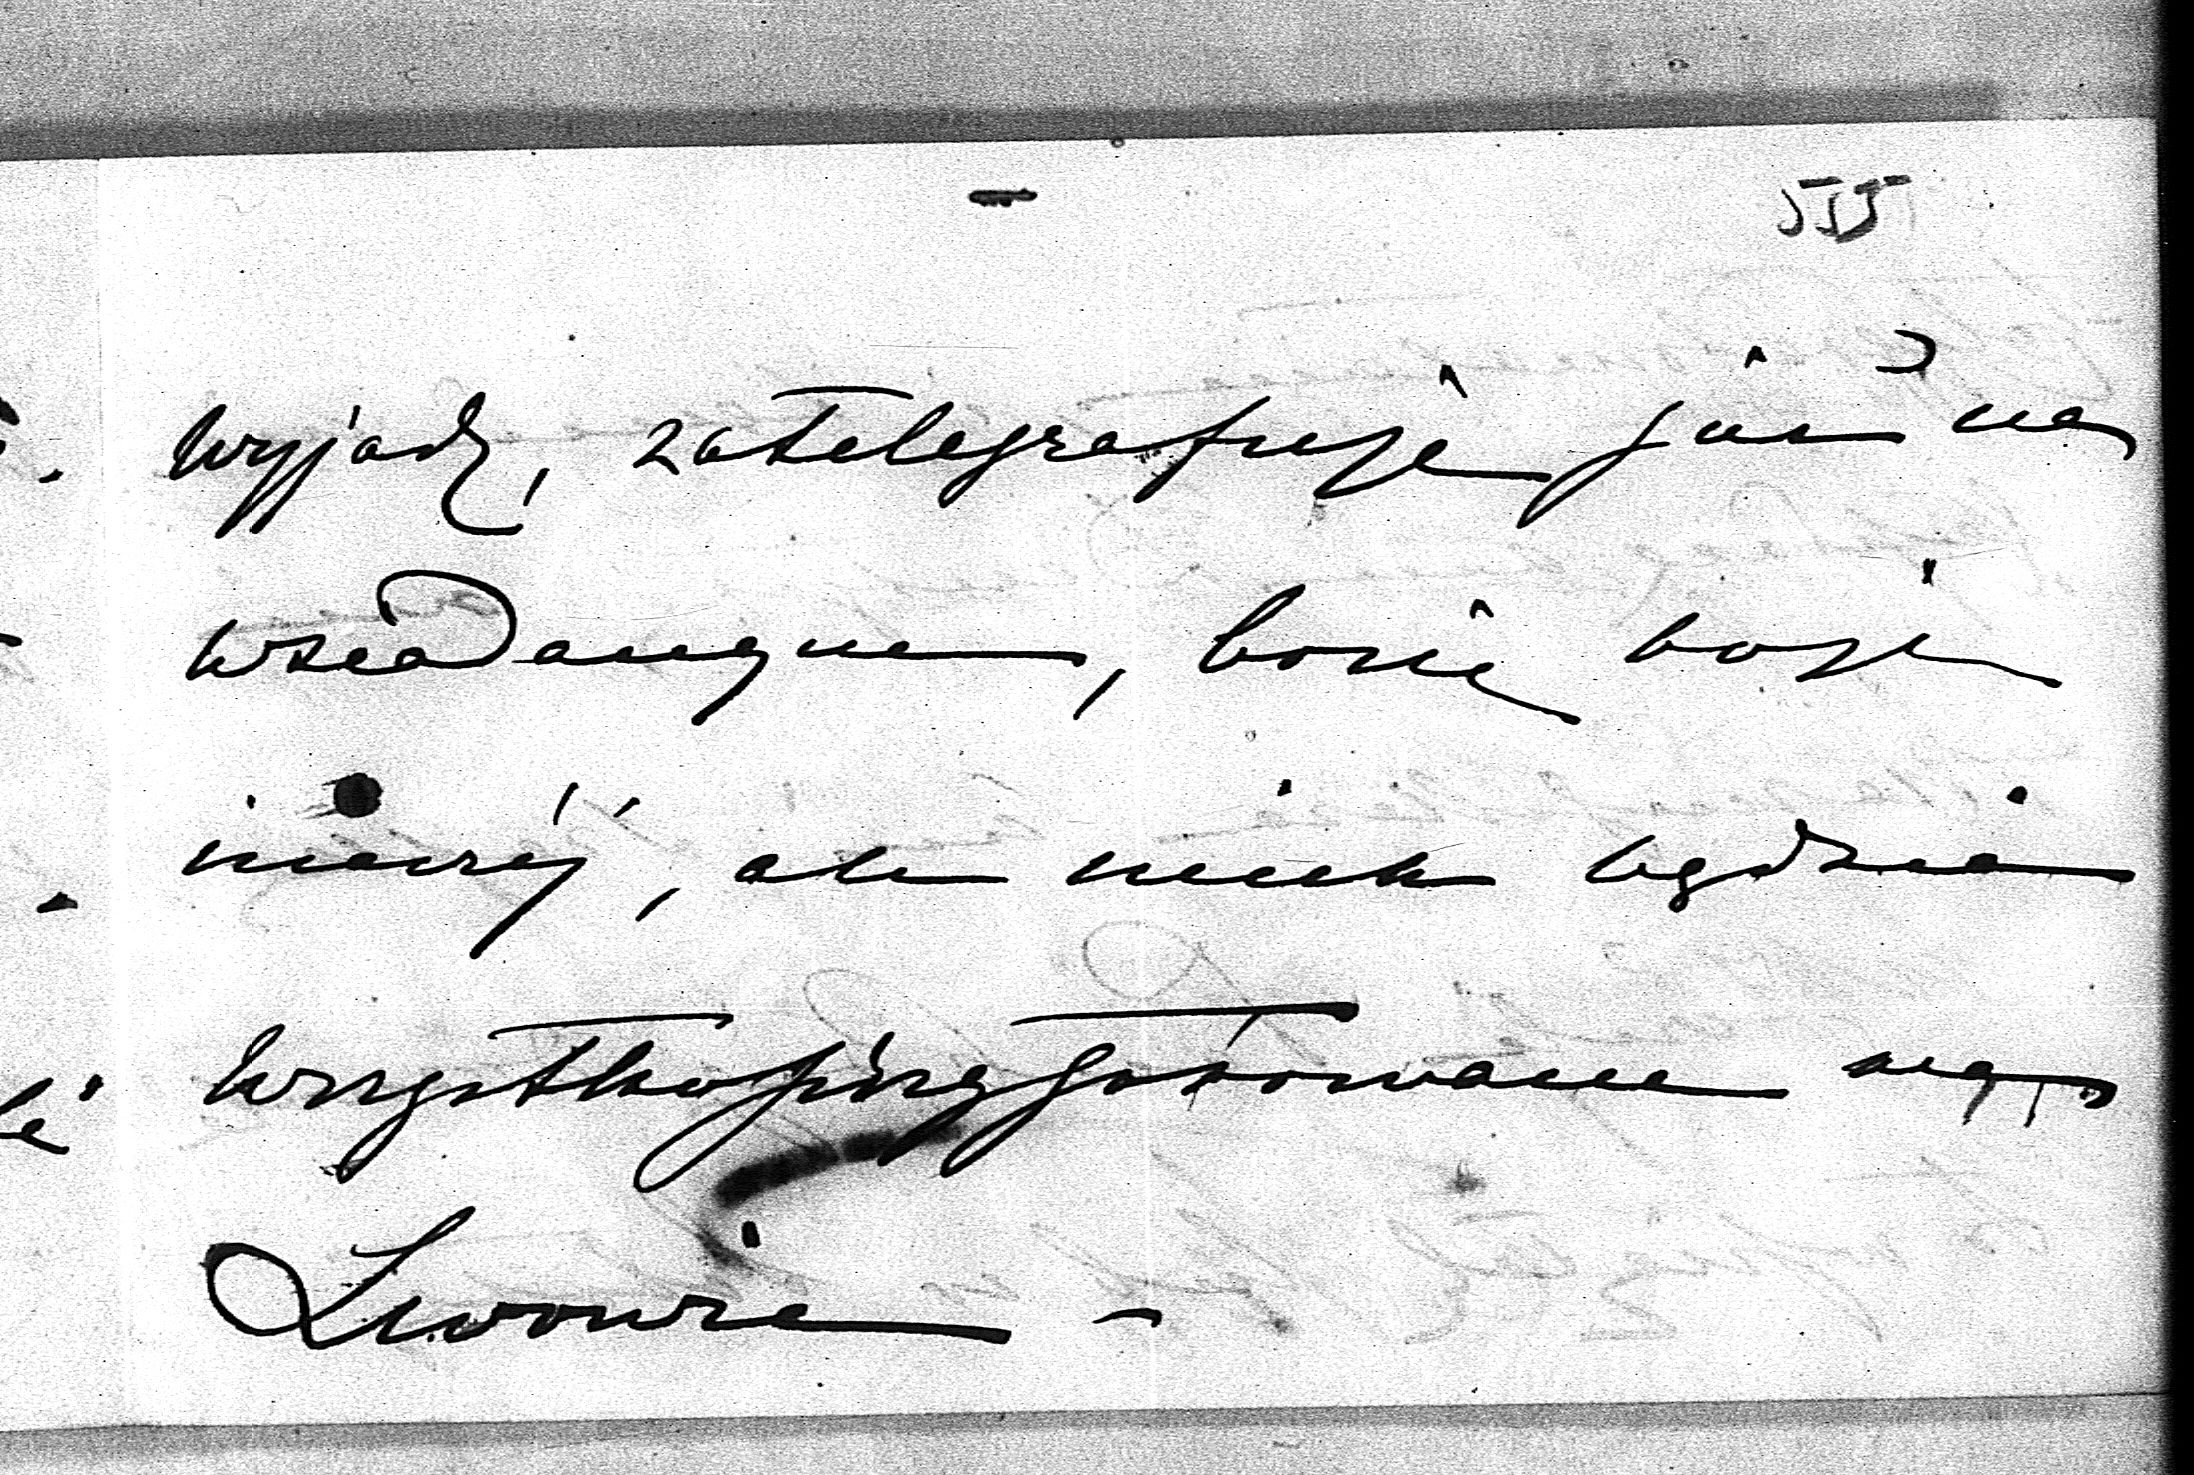 wyjadę, zatelegrafuję już na
wsiadanym, bo się boję
inaczéj, ale niech będzie
wszystko przygotowane we
Lwowie -